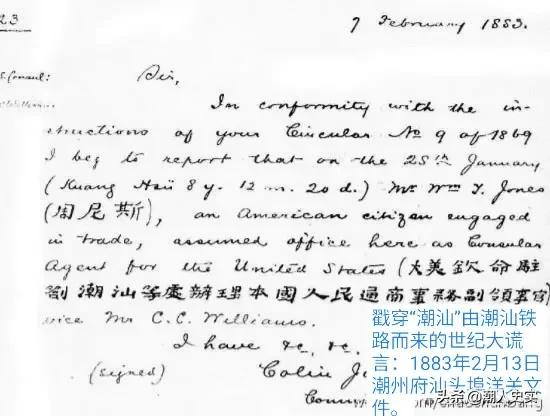 23
7 February 1883.
S. Consul:
Sir,
In conformity with the in-
structions of your Circular No 9 of 1869
I beg to report that on the 28th January
(Kuang Hsü 8 y. 12 m. 20 d.) Mr Wm Y. Jones
(周尼斯), an American citizen engaged
in trade, assumed office here as Consular
Agent for the United States (大美欽命駐
劄潮汕等處辦理本國人民通商事務副領事官)
vice Mr C. C. Williams.
I have &c. &c.
(signed) Colin J
Comm
戳穿“潮汕”由潮汕铁
路而来的世纪大谎
言：1883年2月13日
潮州府汕头埠洋关文
件。
头条 @潮人史实